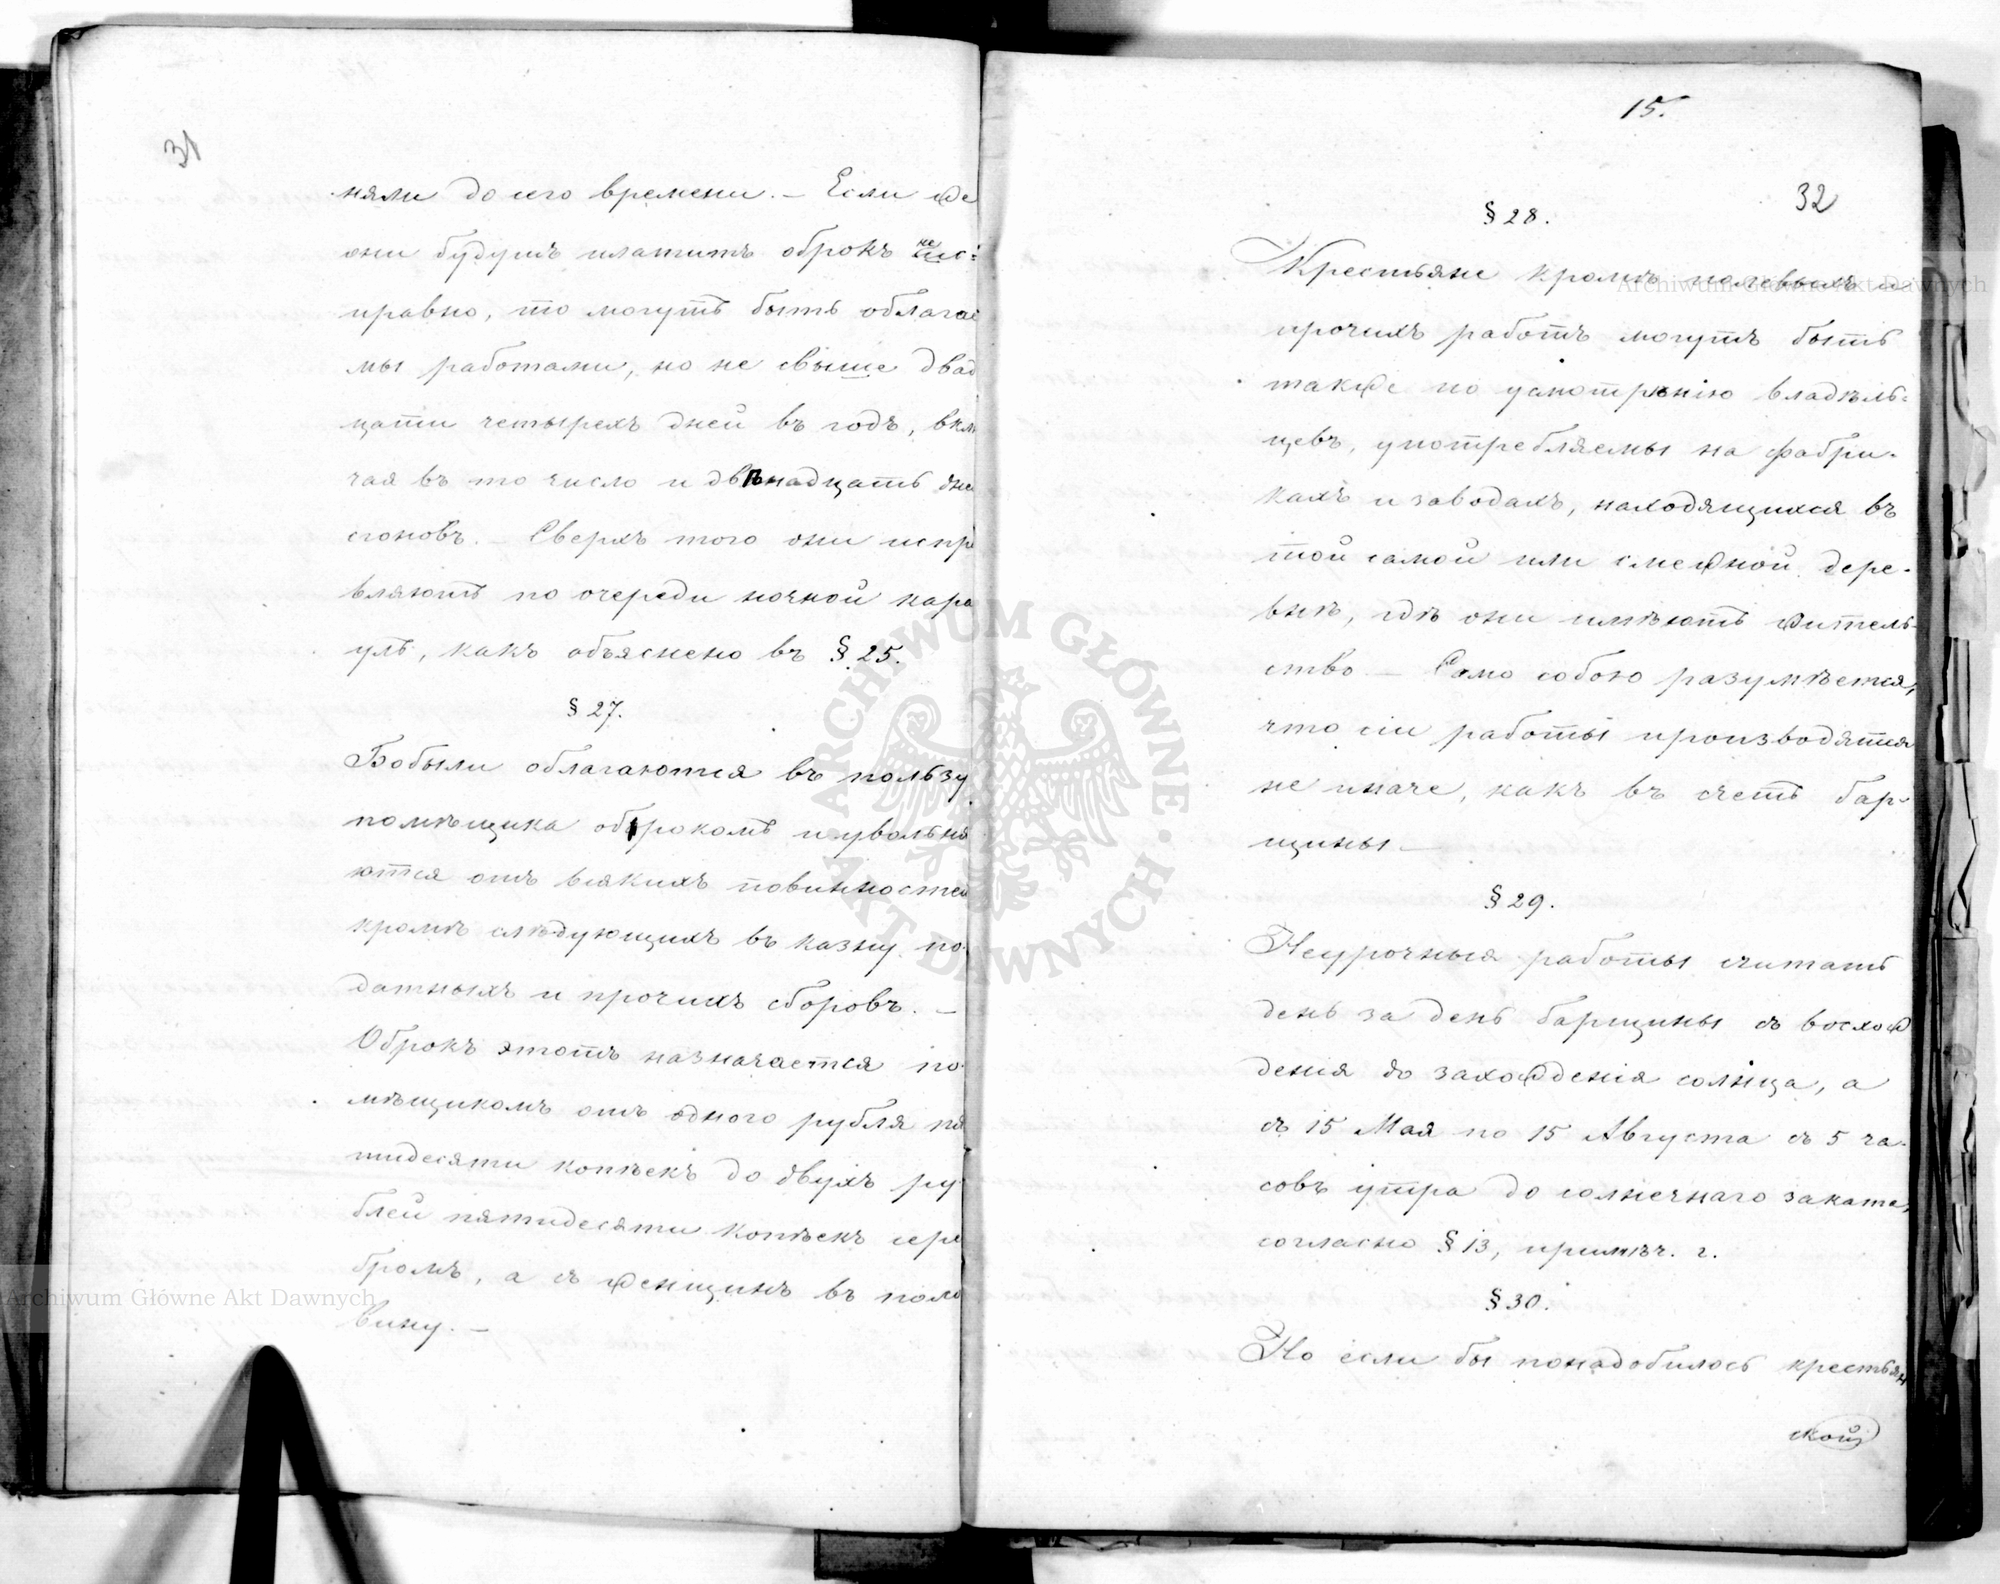 31
няли до сего времени. — Если же
они будутъ платить оброкъ не ис-
правно, то могутъ быть облагае
мы работами, но не свыше двад
цати четырехъ дней въ годъ, вклю
чая въ то число и двѣнадцать дней
сгоновъ. — Сверхъ того они испра
вляютъ по очереди ночной кара
улъ, какъ объяснено въ § 25.
§ 27.
Бобыли облагаются въ пользу
помѣщика оброкомъ и увольня
ются отъ всякихъ повинностей
кромѣ слѣдующихъ въ казну по-
датныхъ и прочихъ сборовъ. —
Оброкъ этотъ назначается по-
мѣщикомъ отъ одного рубля пя
тидесяти копѣекъ до двухъ ру-
блей пятидесяти копѣекъ сере
бромъ, а съ женщинъ въ поло
вину. —
15.
32
§ 28.
Крестьяне кромѣ полевыхъ и
прочихъ работъ могутъ быть
также по усмотрѣнію владѣль-
цевъ, употребляемы на фабри-
кахъ и заводахъ, находящихся въ
той самой или смежной дере-
внѣ, гдѣ они имѣютъ житель-
ство — Само собою разумѣется,
что сіи работы производятся
не иначе, какъ въ счетъ бар-
щины —
§ 29.
Неурочныя работы считать
день за день барщины съ восхож
денія до захожденія солнца, а
съ 15 Мая по 15 Августа съ 5 ча-
совъ утра до солнечнаго заката,
согласно § 13, примѣч. г.
§ 30.
Но если бы понадобилось крестьян
ской
ARCHIWUM GŁÓWNE AKT DAWNYCH
Archiwum Główne Akt Dawnych
Archiwum Główne Akt Dawnych